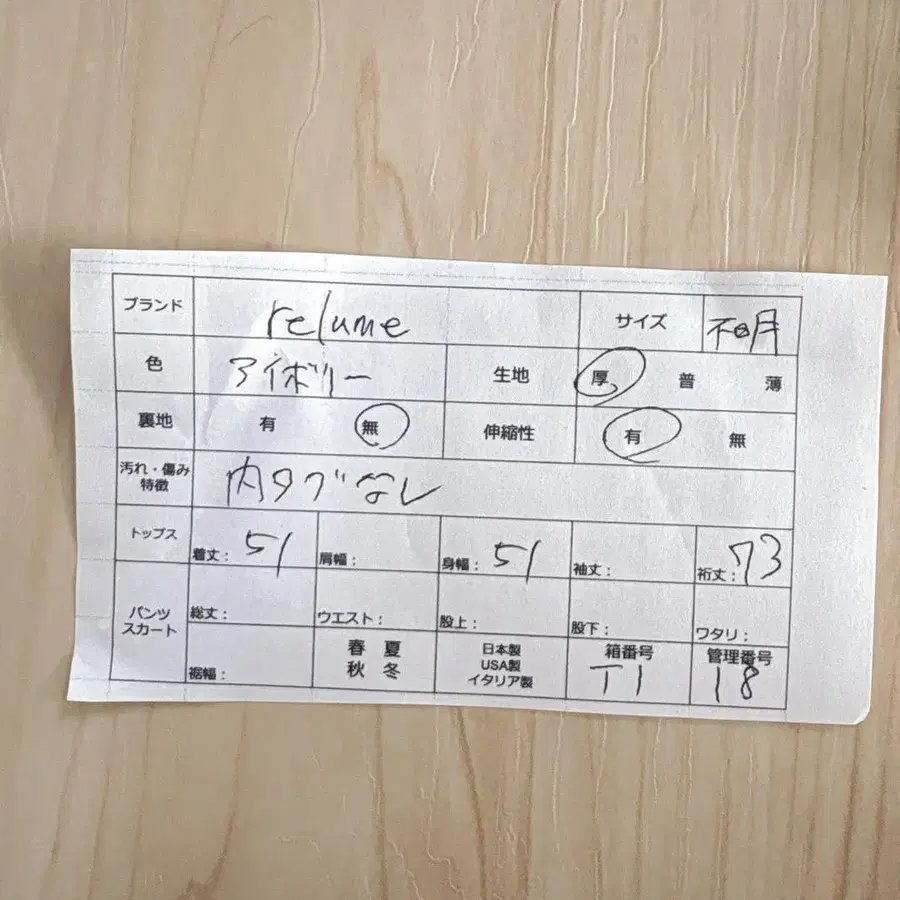 ブランド relume サイズ 不明
色 アイボリー 生地 厚 普 薄
裏地 有 無 伸縮性 有 無
汚れ・傷み
特徴 内タグなし
トップス 着丈: 51 肩幅: 身幅: 51 袖丈: 裄丈: 73
パンツ
スカート
総丈: ウエスト: 股上: 股下: ワタリ:
裾幅:
春 夏
秋 冬
日本製
USA製
イタリア製
箱番号
T1
管理番号
18